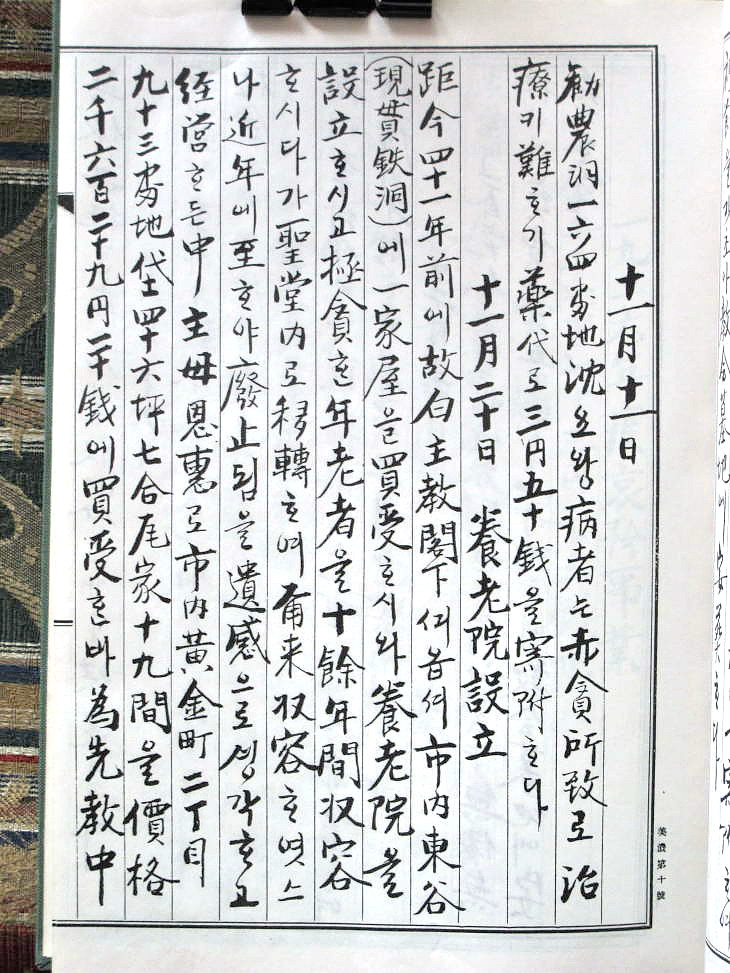 十一月十一日
勸農洞一六四番地沈요왕病者는赤貧所致로治
療키難ᄒᆞ기藥代로三円五十錢을寄附ᄒᆞ다
十一月二十日 養老院設立
距今四十一年前에故白主教閣下씌옵셔市内東谷
(現貫鉄洞)에一家屋을買受ᄒᆞ시와養老院을
設立ᄒᆞ시고極貧ᄒᆞᆫ年老者을十餘年間収容
ᄒᆞ시다가聖堂内로移轉ᄒᆞ여甭来収容ᄒᆞ엿스
나近年에至ᄒᆞ야廢止됨을遺感으로셍각ᄒᆞ고
経営ᄒᆞ든中主母恩惠로市内黃金町二丁目
九十三番地垈四十六坪七合尾家十九間을價格
二千六百二十九円二十錢에買受ᄒᆞᆫ바為先教中
美濃第十號